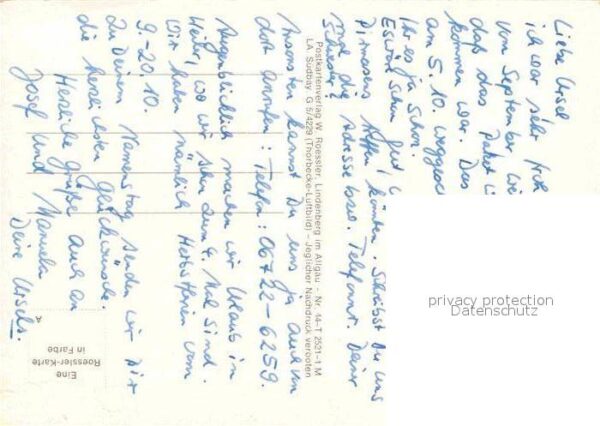 Liebe Ursel
ich war sehr froh
vom September
daß das Paket
kommen war. Das
am 5. 10. weggesc
Ist es ja schon.
Es wär schon gut
Pirmasens könnten. Schreibst Du uns
mal die Adresse bzw. Telefonnr. Deiner
Schwester?
Ansonsten kannst Du uns ja auch von
dort anrufen: Telefon: 06722-6259.
Augenblicklich machen wir Urlaub in
Weiler, wo wir schon zum 4. Mal sind.
Wir haben nämlich Herbstferien vom
9.-20.10.
Zu Deinem Namenstag senden wir Dir
die herzlichsten Glückwünsche.
Herzliche Grüße auch an
Josef und Manuela
Deine Ursel.
Postkartenverlag W. Roessler, Lindenberg im Allgäu - Nr. 14-T 2521-1 M
LA. Südbay. G 5/4229 (Thorbecke-Luftbild) - Jeglicher Nachdruck verboten
A
Eine
Roessler-Karte
in Farbe
privacy protection
Datenschutz